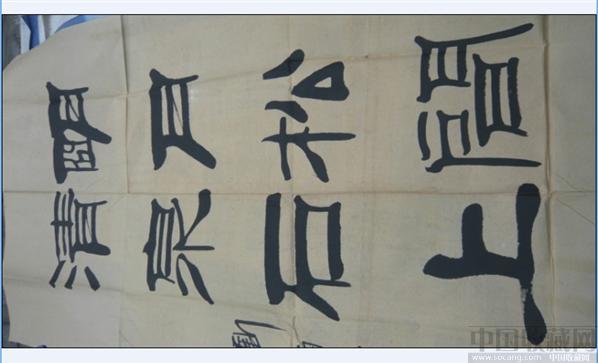 眀月松間
清泉石上
中国收藏网
www.socang.com 中国收藏网